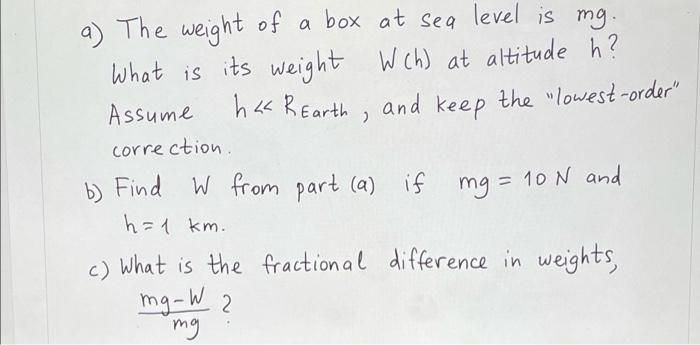 a) The weight of a box at sea level is mg.
What is its weight W(h) at altitude h?
Assume h<< REarth, and keep the "lowest-order"
correction.
b) Find W from part (a) if mg = 10 N and
h=1 km.
c) What is the fractional difference in weights,
mg-W
mg ?